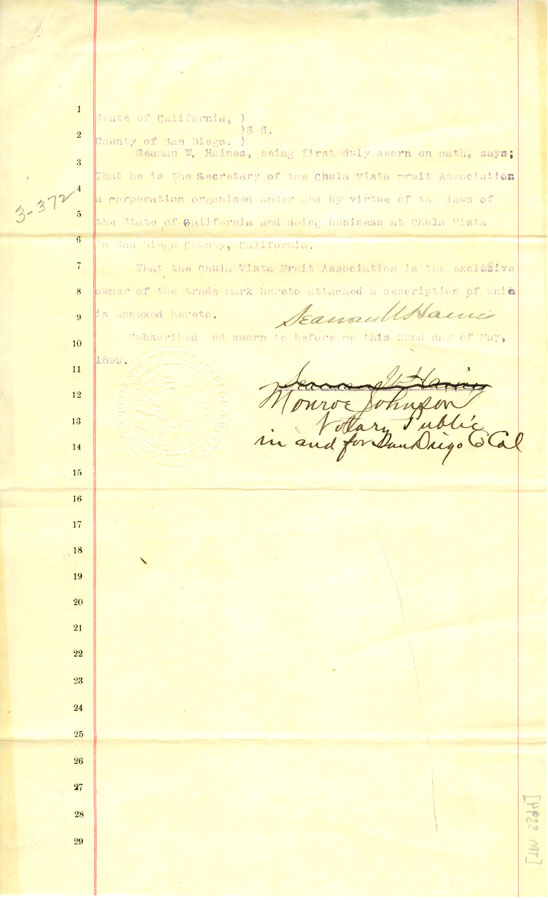 1
State of California, )
)S S.
2
County of San Diego. )
Seaman W. Haines, being first duly sworn on oath, says;
3
That he is the Secretary of the Chula Vista Fruit Association
4
3-372
a corporation organized under and by virtue of the laws of
5
the State of California and doing business at Chula Vista
6
in San Diego County, California.
7
That the Chula Vista Fruit Association is the exclusive
8
owner of the trade mark hereto attached a description of which
9
is annexed hereto.
Seaman W Haines
10
Subscribed and sworn to before me this day of May,
1899.
11
Seaman W Haines
12
Monroe Johnson
13
Notary Public
14
in and for San Diego Co Cal
15
16
17
18
19
20
21
22
23
24
25
26
27
28
29